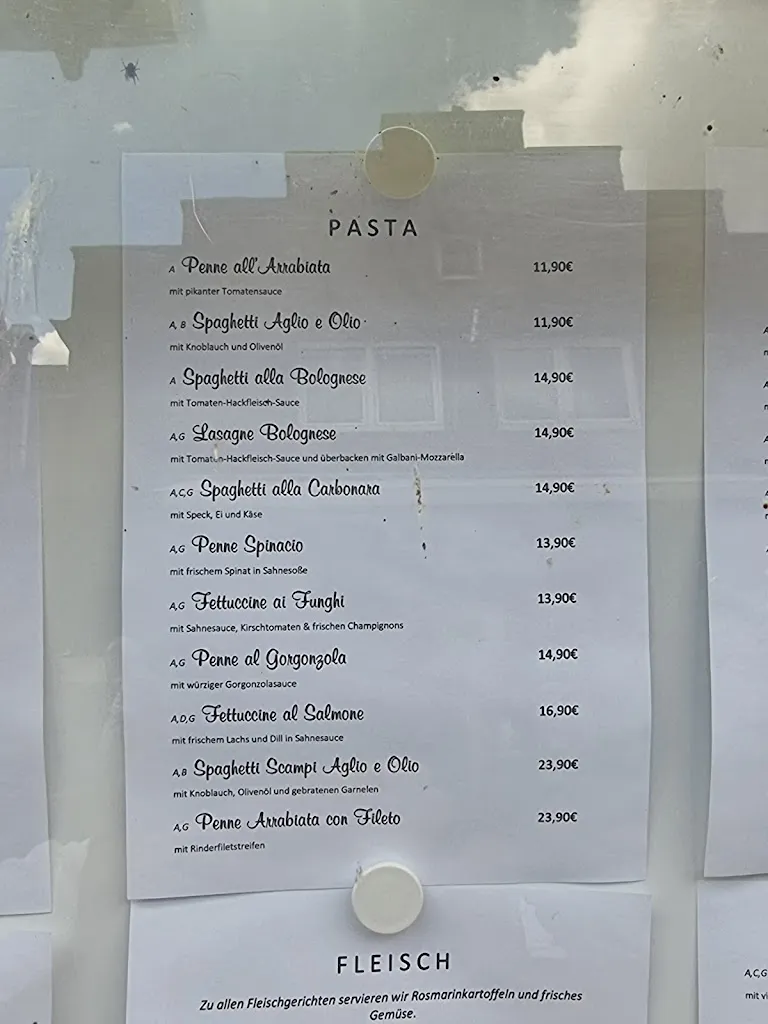 PASTA
A Penne all'Arrabiata 11,90€
mit pikanter Tomatensauce
A, B Spaghetti Aglio e Olio 11,90€
mit Knoblauch und Olivenöl
A Spaghetti alla Bolognese 14,90€
mit Tomaten-Hackfleisch-Sauce
A,G Lasagne Bolognese 14,90€
mit Tomaten-Hackfleisch-Sauce und überbacken mit Galbani-Mozzarella
A,C,G Spaghetti alla Carbonara 14,90€
mit Speck, Ei und Käse
A,G Penne Spinacio 13,90€
mit frischem Spinat in Sahnesoße
A,G Fettuccine ai Funghi 13,90€
mit Sahnesauce, Kirschtomaten & frischen Champignons
A,G Penne al Gorgonzola 14,90€
mit würziger Gorgonzolasauce
A,D,G Fettuccine al Salmone 16,90€
mit frischem Lachs und Dill in Sahnesauce
A,B Spaghetti Scampi Aglio e Olio 23,90€
mit Knoblauch, Olivenöl und gebratenen Garnelen
A,G Penne Arrabiata con Fileto 23,90€
mit Rinderfiletstreifen
FLEISCH
Zu allen Fleischgerichten servieren wir Rosmarinkartoffeln und frisches
Gemüse.
A,C,G
mit vi